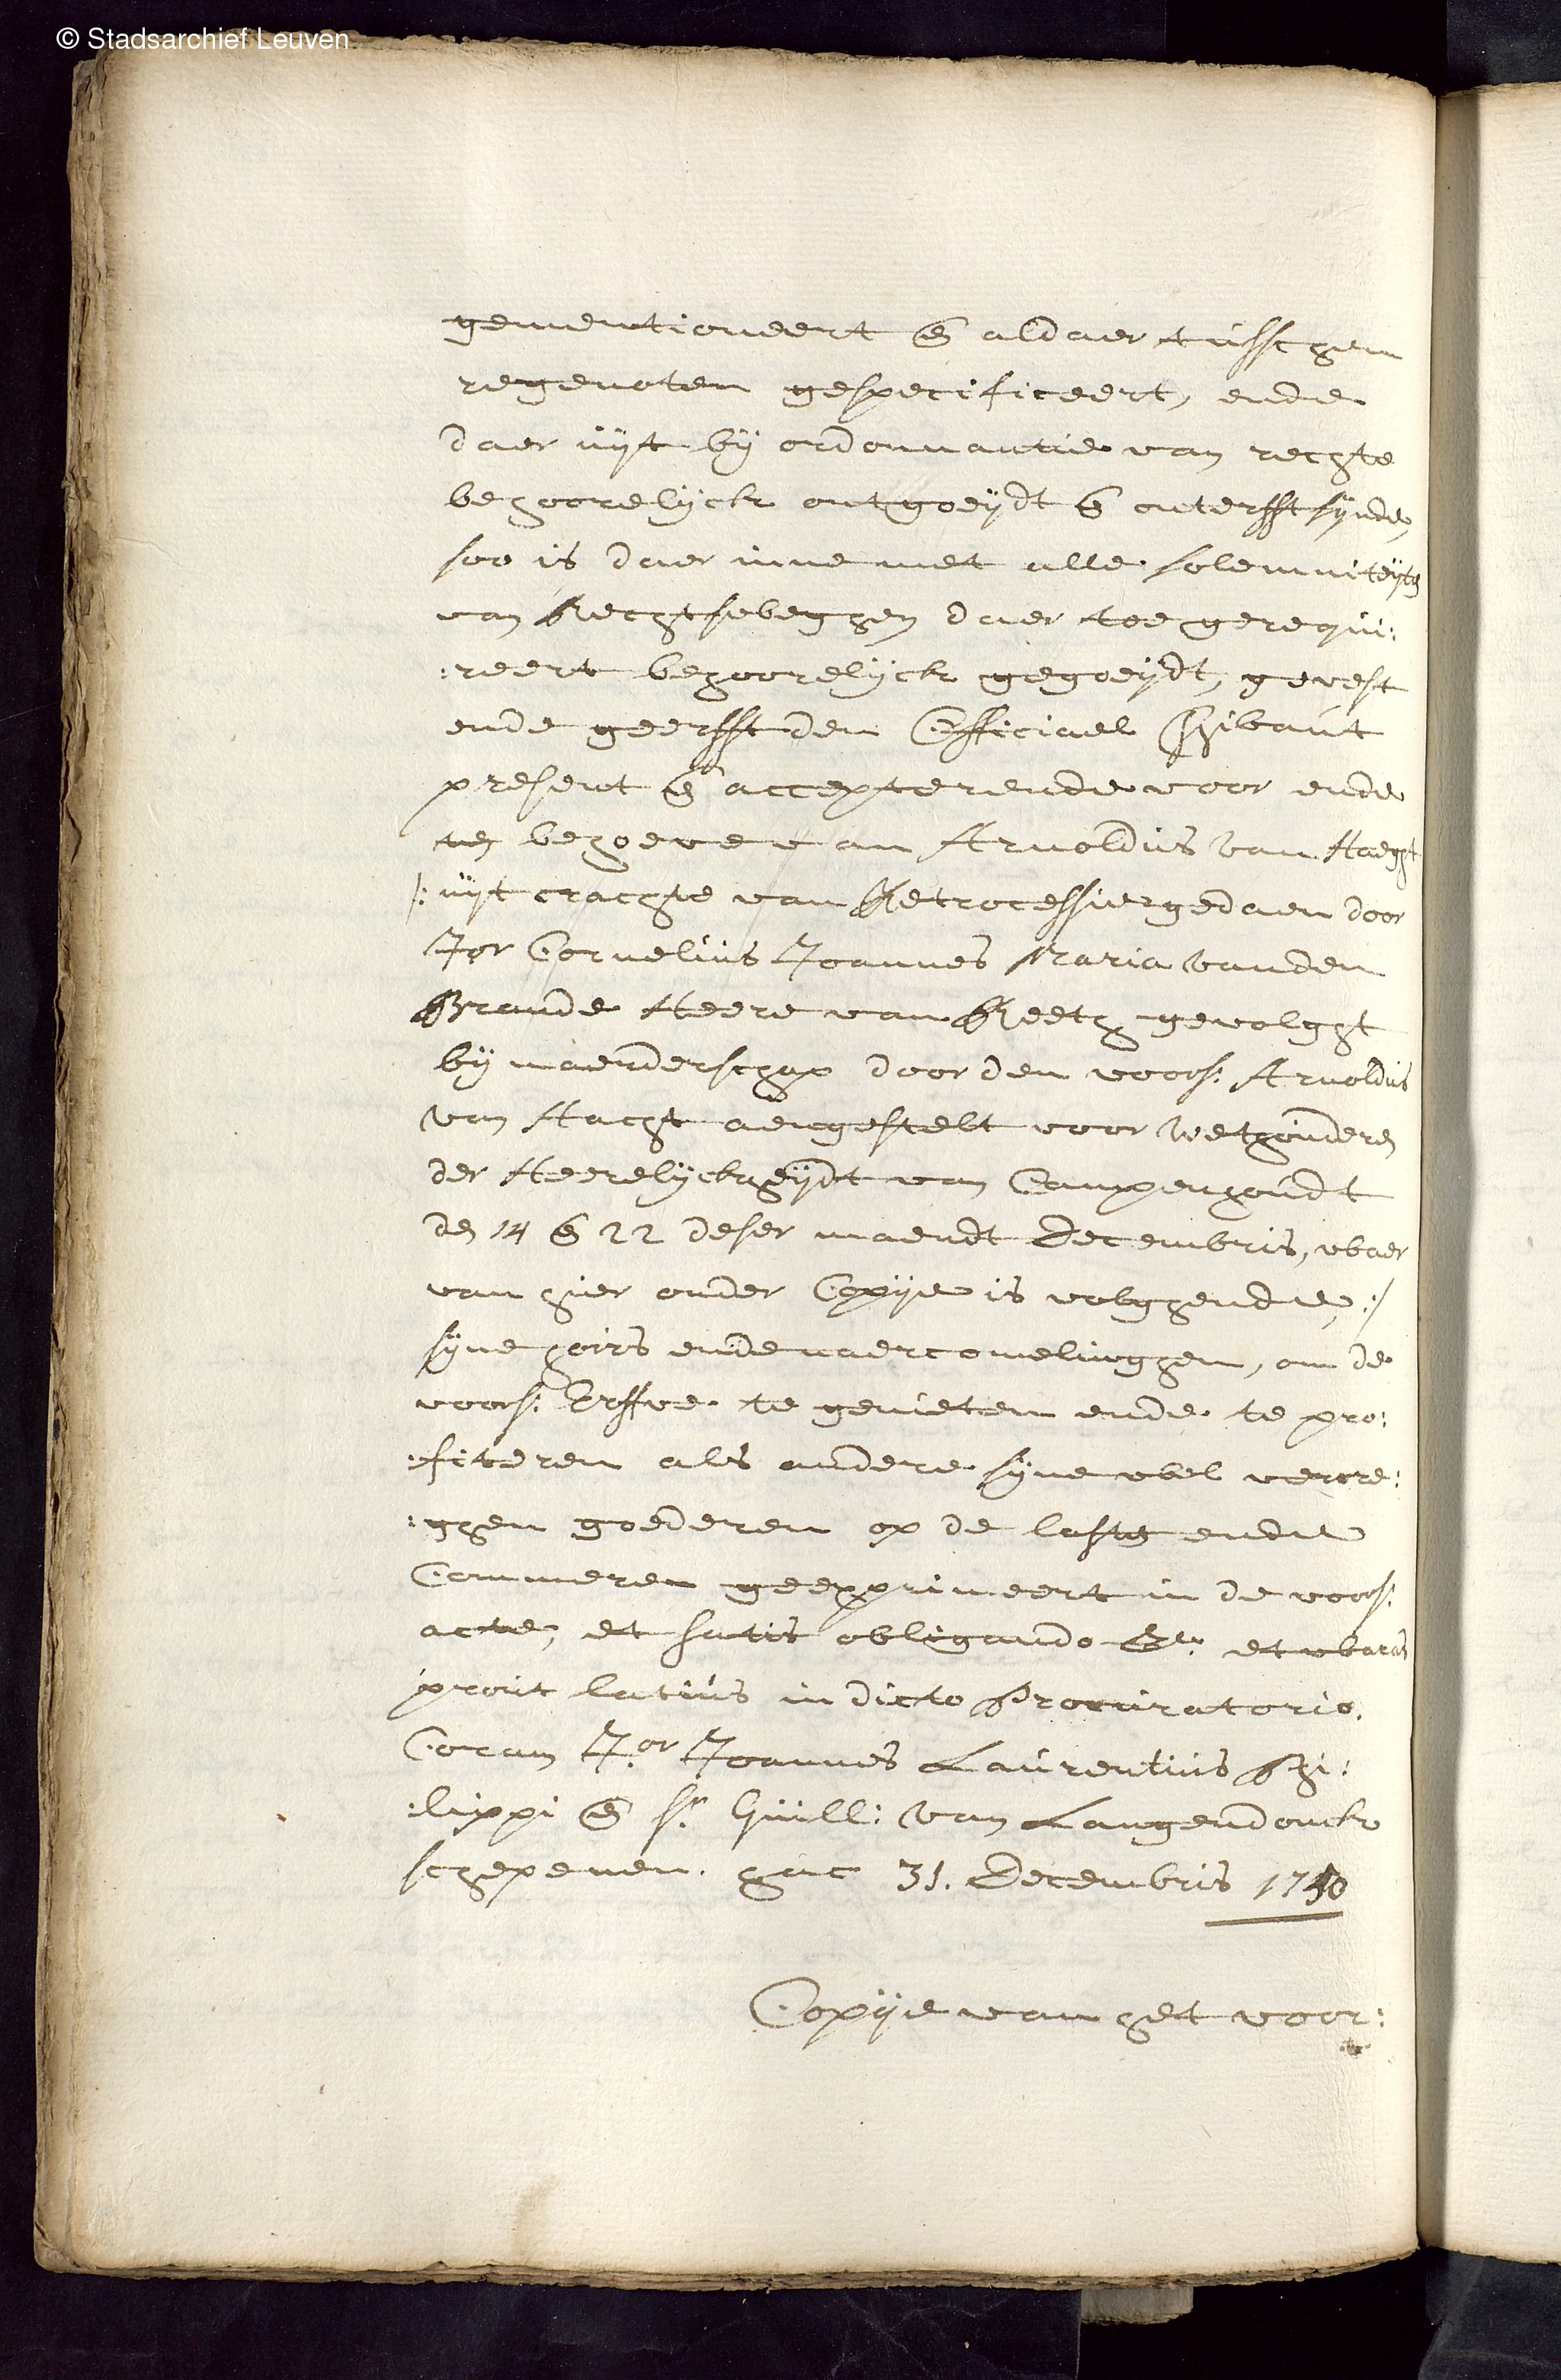 © Stadsarchief Leuven
gementioneert & aldaer tusschen
regenoten gespecificeert, ende
daer uijt bij ordonnantie van rechte
behoorelijck ontgoeijdt & onterfft sijnde,
soo is daer inne met alle solemniteijten
van Rechtsweghen daer toe gerequi:
:reert behoorelijck gegoeijdt, gevest
ende geerfft den Officiael Thibaut
present & accepterende voor ende
ten behoeve van Arnoldus van Haeght
/: uijt crachte van Retrocessie gedaen door
Jor Cornelius Joannes Maria vanden
Brande Heere van Reeth gevolght
bij naerderschap door den voors: Arnoldus
van Hacht aengestelt voor Wethouderen
der Heerelijckheijdt van Campenhoudt
den 14 & 22 deser maendt Decembris, waer
van hier onder Copije is volghende, :/
sijne hoirs ende naercomelinghen, om de
voors: Erffve te genieten ende te pro:
:fiteren als andere sijne wel vercre:
:ghen goederen op de lasten ende
Commeren geexprimeert in de voors:
acte, et satis obligando et waras
prout latius in dicto Procuratorio.
Coram Jor Joannes Laurentius Phi:
:lippi & sr Guill: van Langendonck
schepenen. hac 31. Decembris 1750
Copije van het voor: